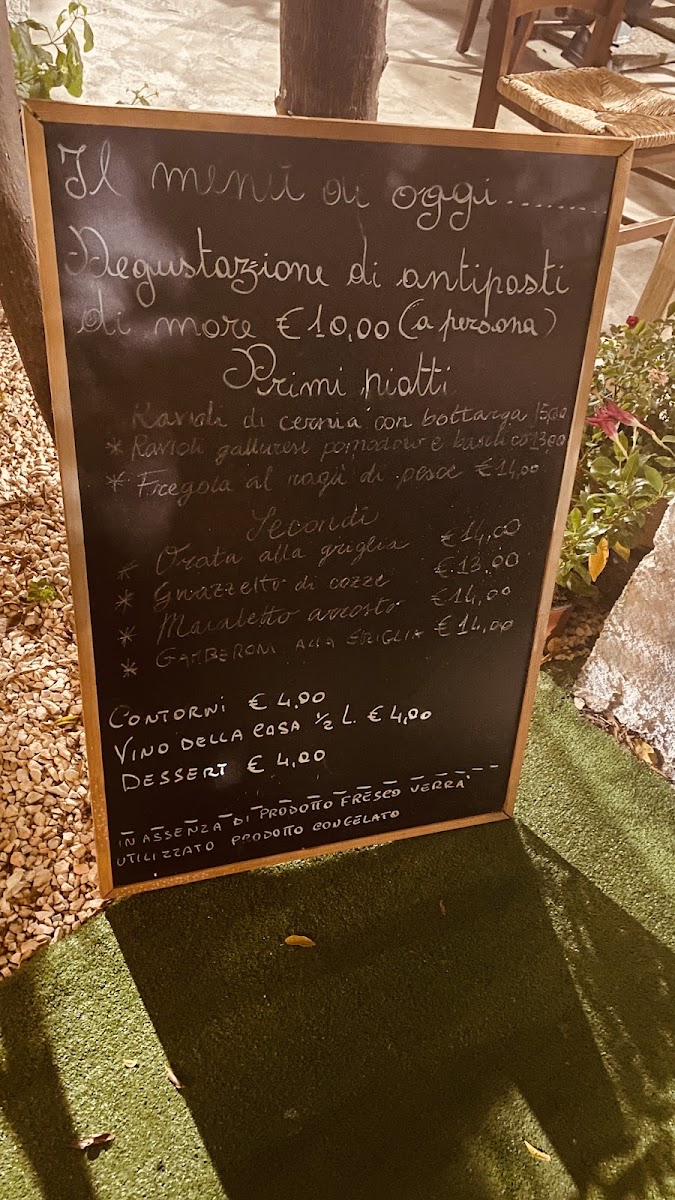 Il menù di oggi.........
Degustazione di antipasti
di mare €10,00 (a persona)
Primi piatti
Ravioli di cernia con bottarga 15,00
* Ravioli galluresi pomodoro e basilico 13,00
* Fregola al ragù di pesce €14,00
Secondi
* Orata alla griglia €14,00
* Guazzetto di cozze €13,00
* Maialetto arrosto €14,00
* GAMBERONI ALLA GRIGLIA €14,00
CONTORNI € 4,00
VINO DELLA CASA 1/2 L. € 4,00
DESSERT € 4,00
IN ASSENZA DI PRODOTTO FRESCO VERRA'
UTILIZZATO PRODOTTO CONGELATO